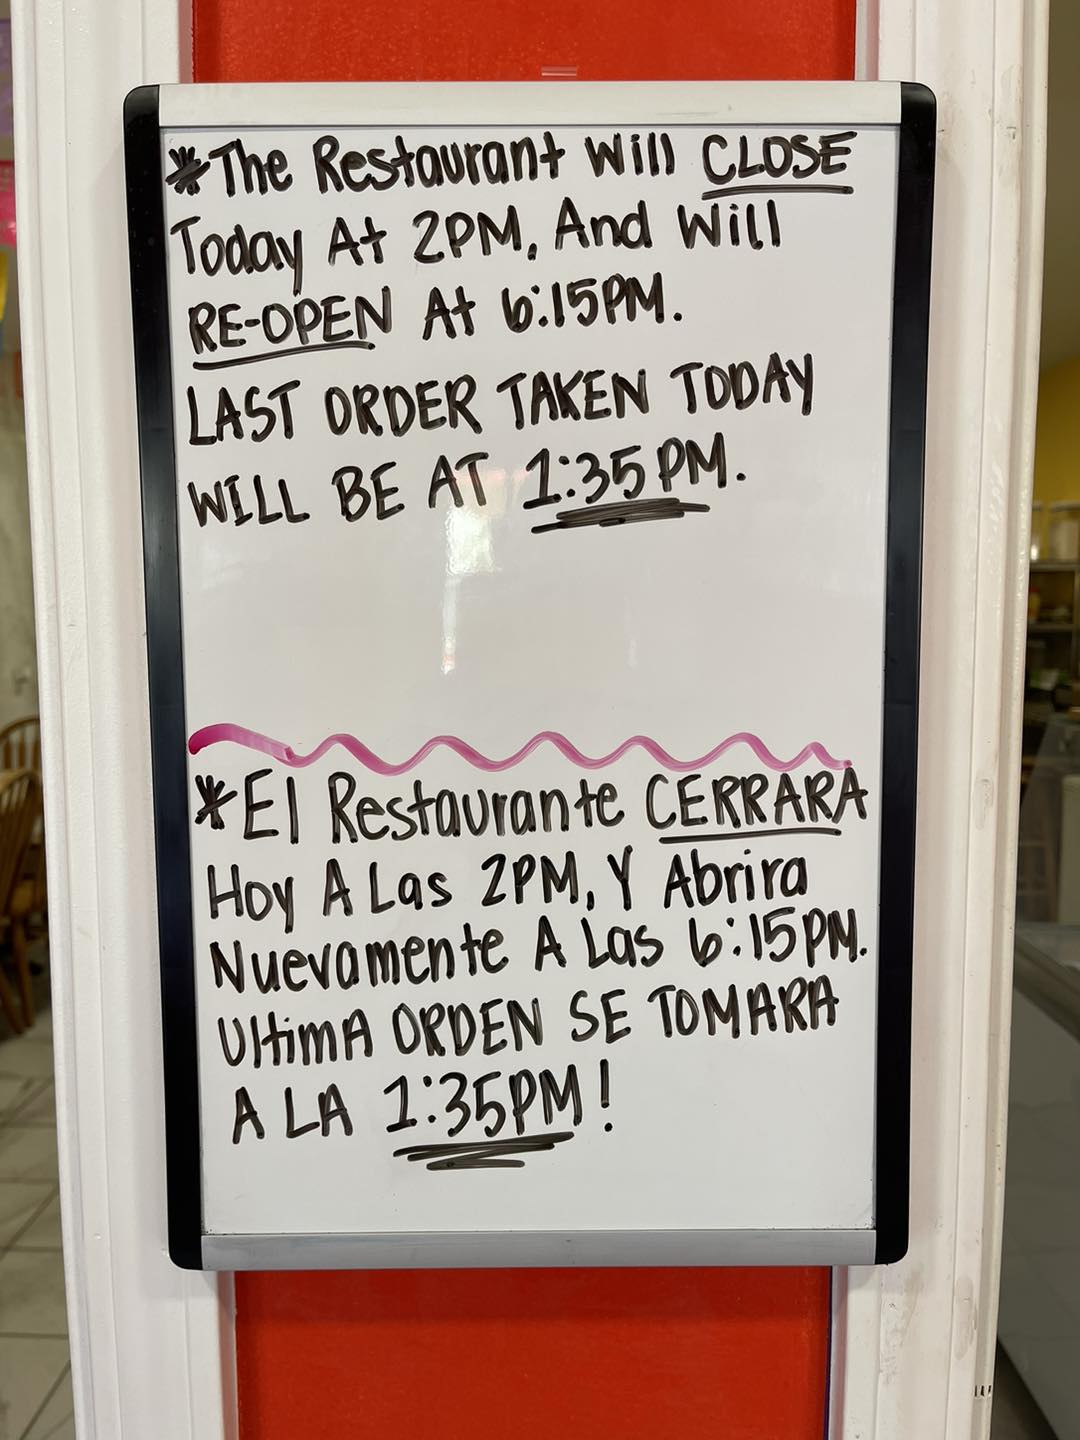 *The Restaurant Will CLOSE
Today At 2PM, And Will
RE-OPEN At 6:15PM.
LAST ORDER TAKEN TODAY
WILL BE AT 1:35PM.
*El Restaurante CERRARA
Hoy A Las 2PM, Y Abrira
Nuevamente A Las 6:15PM.
UltimA ORDEN SE TOMARA
A LA 1:35PM!